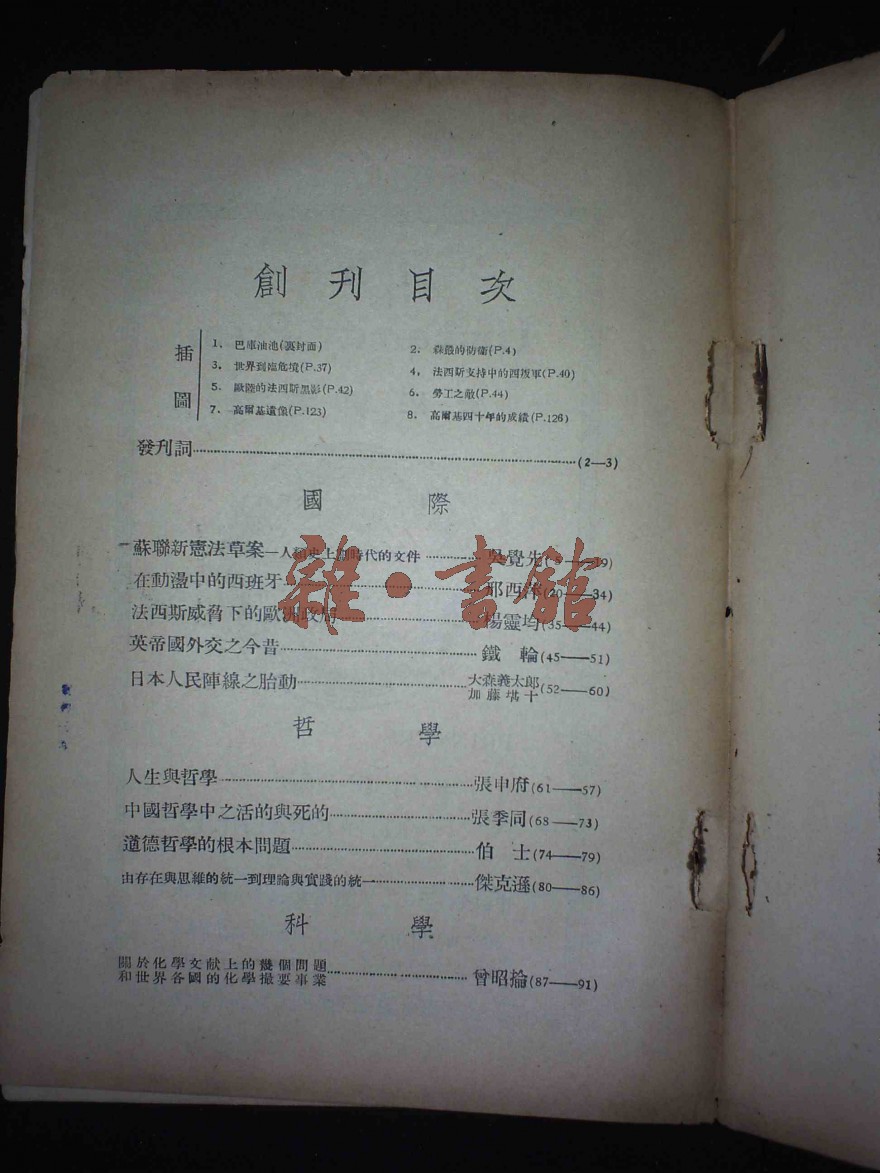 創刊目次
插圖
1. 巴庫油池(裏封面)
2. 森嚴的防衛(P.4)
3. 世界到臨危境(P.37)
4. 法西斯支持中的西叛軍(P.40)
5. 歐陸的法西斯黑影(P.42)
6. 勞工之敵(P.44)
7. 高爾基遺像(P.123)
8. 高爾基四十年的成績(P.126)
發刊詞(2—3)
國際
蘇聯新憲法草案—人類史上劃時代的文件 吳覺先(5—19)
在動盪中的西班牙 邢西萍(20—34)
法西斯威脅下的歐洲政局 楊靈均(35—44)
英帝國外交之今昔 鐵輪(45—51)
日本人民陣線之胎動 大森義太郎 加藤堪十(52—60)
哲學
人生與哲學 張申府(61—57)
中國哲學中之活的與死的 張季同(68—73)
道德哲學的根本問題 伯士(74—79)
由存在與思維的統一到理論與實踐的統一 傑克遜(80—86)
科學
關於化學文献上的幾個問題
和世界各國的化學撮要事業 曾昭掄(87—91)
雜·書館